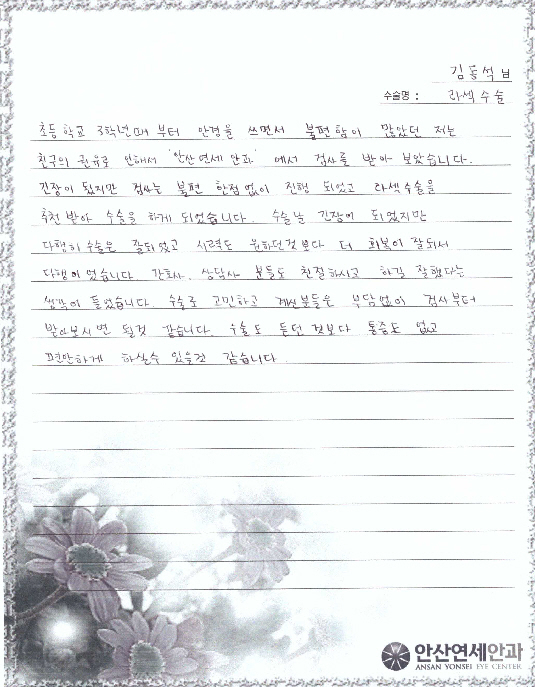 김동석 님
수술명 : 라섹수술
초등학교 3학년때 부터 안경을 쓰면서 불편함이 많았던 저는
친구의 권유로 인해서 '안산연세안과' 에서 검사를 받아 보았습니다.
긴장이 됬지만 검사는 불편 한점없이 진행 되었고 라섹수술을
추천 받아 수술을 하게 되었습니다. 수술날 긴장이 되었지만
다행히 수술은 잘되었고 시력도 원하던것보다 더 회복이 잘되서
다행이었습니다. 간호사, 상담사 분들도 친절하시고 하길 잘했다는
생각이 들었습니다. 수술로 고민하고 계신분들은 부담없이 검사부터
받아보시면 될것 같습니다. 수술도 듣던 것보다 통증도 없고
편안하게 하실수 있을것 같습니다.
안산연세안과
ANSAN YONSEI EYE CENTER